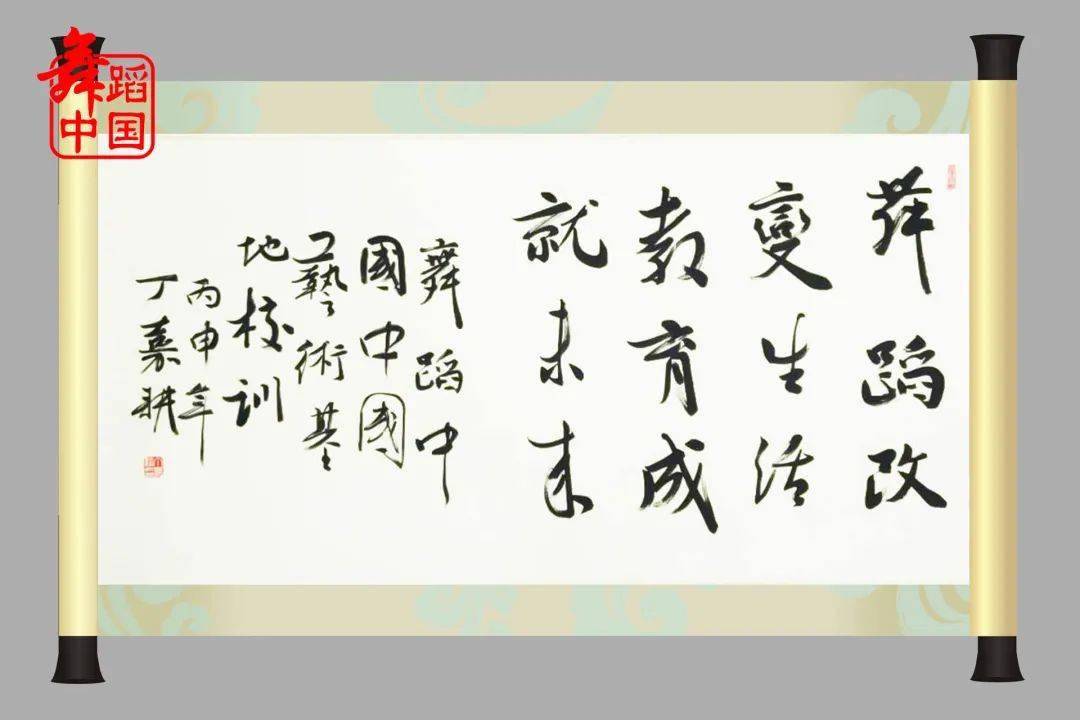 舞蹈
中国
舞蹈改
變生活
教育成
就未来
舞蹈中
國中國
工藝術基
地校訓
丙申年
丁嘉耕